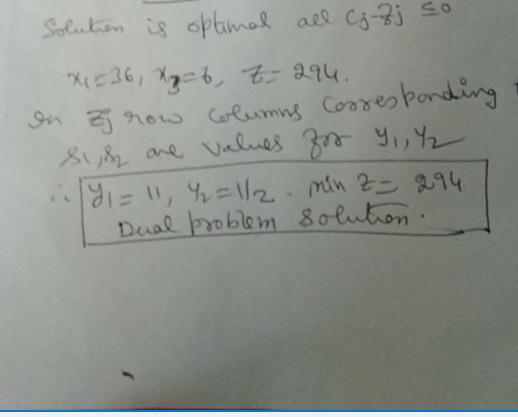 Solution is optimal all Cj-Zj ≤0
x1=36, x3=6, Z= 294.
In Zj row columns corresponding
s1,s2 are values for y1,y2
∴ y1= 11, y2=1/2. min Z= 294
Dual problem solution.